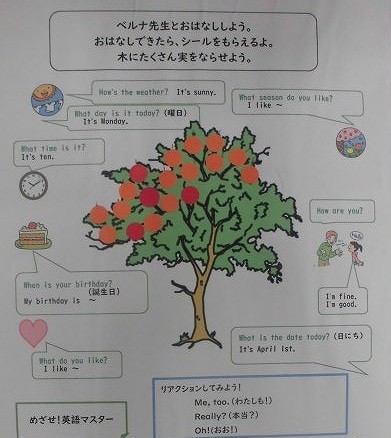 ベルナ先生とおはなししよう。
おはなしできたら、シールをもらえるよ。
木にたくさん実をならせよう。
How's the weather? It's sunny.
What day is it today?(曜日)
It's Monday.
What season do you like?
I like ～
What time is it?
It's ten.
How are you?
Hello!
I'm fine.
I'm good.
When is your birthday?
(誕生日)
My birthday is ～
What is the date today?(日にち)
It's April 1st.
What do you like?
I like ～
リアクションしてみよう!
Me, too.(わたしも!)
Really?(本当?)
Oh!(おお!)
めざせ!英語マスター